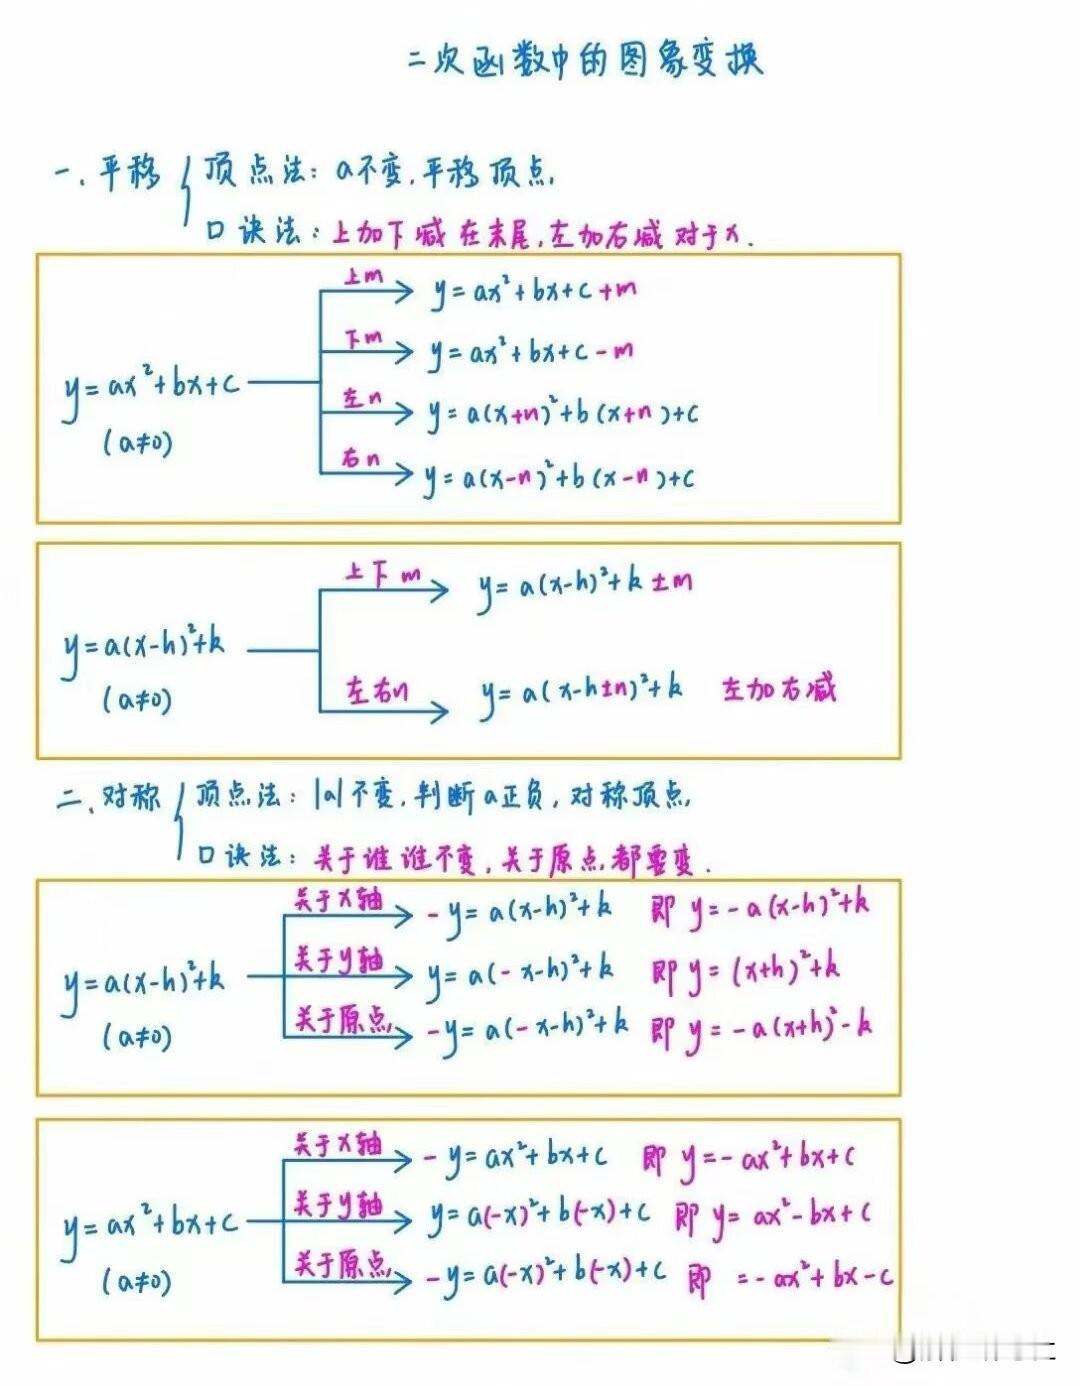 二次函数中的图象变换
一、平移 { 顶点法：a不变，平移顶点，
口诀法：上加下减在末尾，左加右减对于x.
上m y=ax²+bx+c+m
下m y=ax²+bx+c-m
y=ax²+bx+c
左n y=a(x+n)²+b(x+n)+c
(a≠0)
右n y=a(x-n)²+b(x-n)+c
上下m y=a(x-h)²+k±m
y=a(x-h)²+k
(a≠0)
左右n y=a(x-h±n)²+k 左加右减
二、对称 { 顶点法：|a|不变，判断a正负，对称顶点，
口诀法：关于谁谁不变，关于原点都要变.
关于x轴 -y=a(x-h)²+k 即 y=-a(x-h)²+k
y=a(x-h)²+k 关于y轴 y=a(-x-h)²+k 即 y=(x+h)²+k
(a≠0) 关于原点 -y=a(-x-h)²+k 即 y=-a(x+h)²-k
关于x轴 -y=ax²+bx+c 即 y=-ax²+bx+c
y=ax²+bx+c 关于y轴 y=a(-x)²+b(-x)+c 即 y=ax²-bx+c
(a≠0) 关于原点 -y=a(-x)²+b(-x)+c 即 =-ax²+bx-c